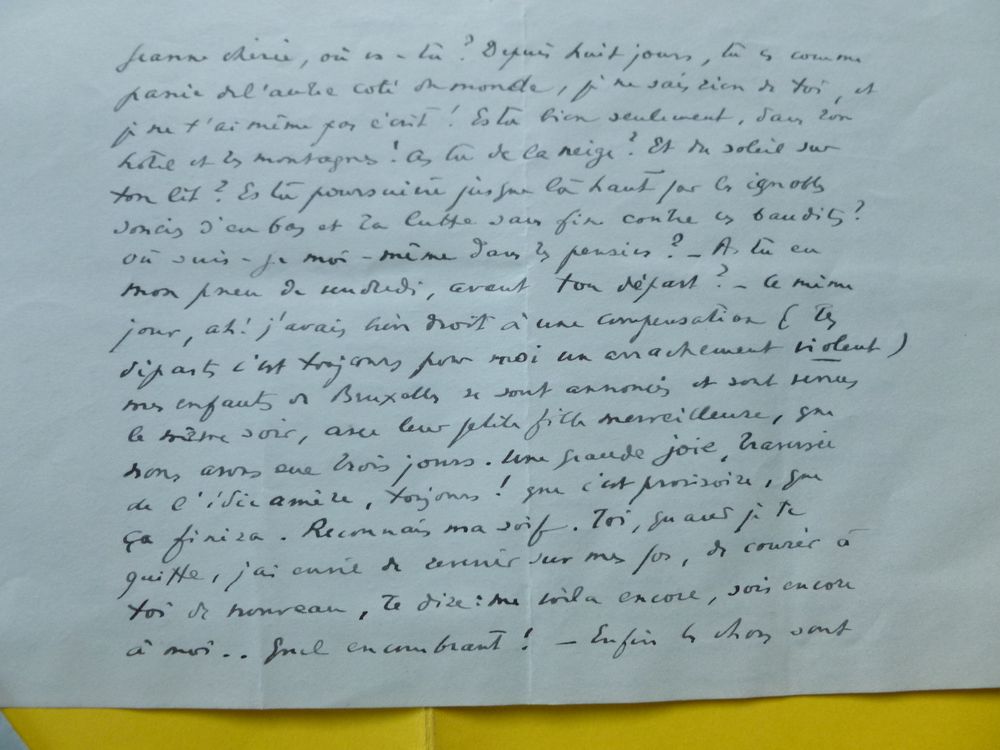 Jeanne chérie, où es-tu ? Depuis huit jours, tu es comme
partie de l'autre coté du monde, je ne sais rien de toi, et
je ne t'ai même pas écrit ! Es tu bien seulement, dans ton
hôtel et tes montagnes ! As tu de la neige ? Et du soleil sur
ton lit ? Es tu poursuivie jusque là haut par les ignobles
soucis d'en bas et ta lutte sans fin contre ces bandits ?
Où suis-je moi-même dans tes pensées ? - As tu eu
mon pneu de vendredi, avant ton départ ? - Ce même
jour, ah ! j'avais bien droit à une compensation (tes
départs c'est toujours pour moi un arrachement violent)
mes enfants de Bruxelles se sont annoncés et sont venus
le même soir, avec leur petite fille merveilleuse, que
nous avons eue trois jours. Une grande joie, traversée
de l'idée amère, toujours ! que c'est provisoire, que
ça finira. Reconnais ma soif. Toi, quand je te
quitte, j'ai envie de revenir sur mes pas, de courir à
toi de nouveau, te dire : me voilà encore, sois encore
à moi.. Quel encombrant ! - Enfin les choses sont